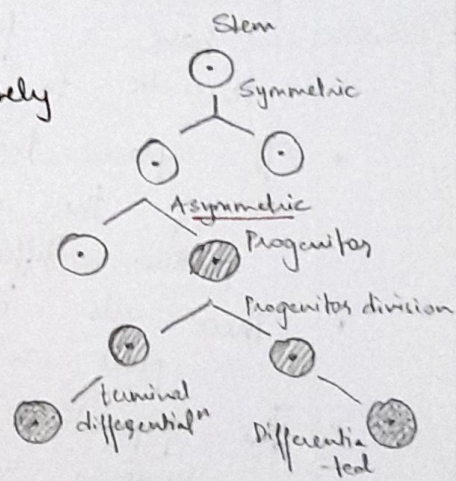 Stem
ely
Symmetric
Asymmetric
Progenitor
Progenitor division
terminal
differential^n
Differentia
-ted